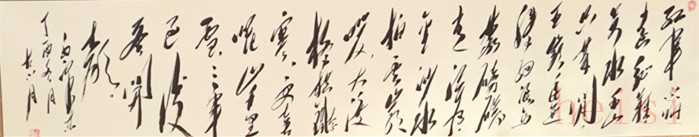 红军不怕
远征难
万水千山
只等闲
五岭逶迤
腾细浪乌
蒙磅礴
走泥丸
金沙水
拍云崖
暖大渡
桥横铁索
寒更喜
岷山千里
雪三军
过后
尽开
颜